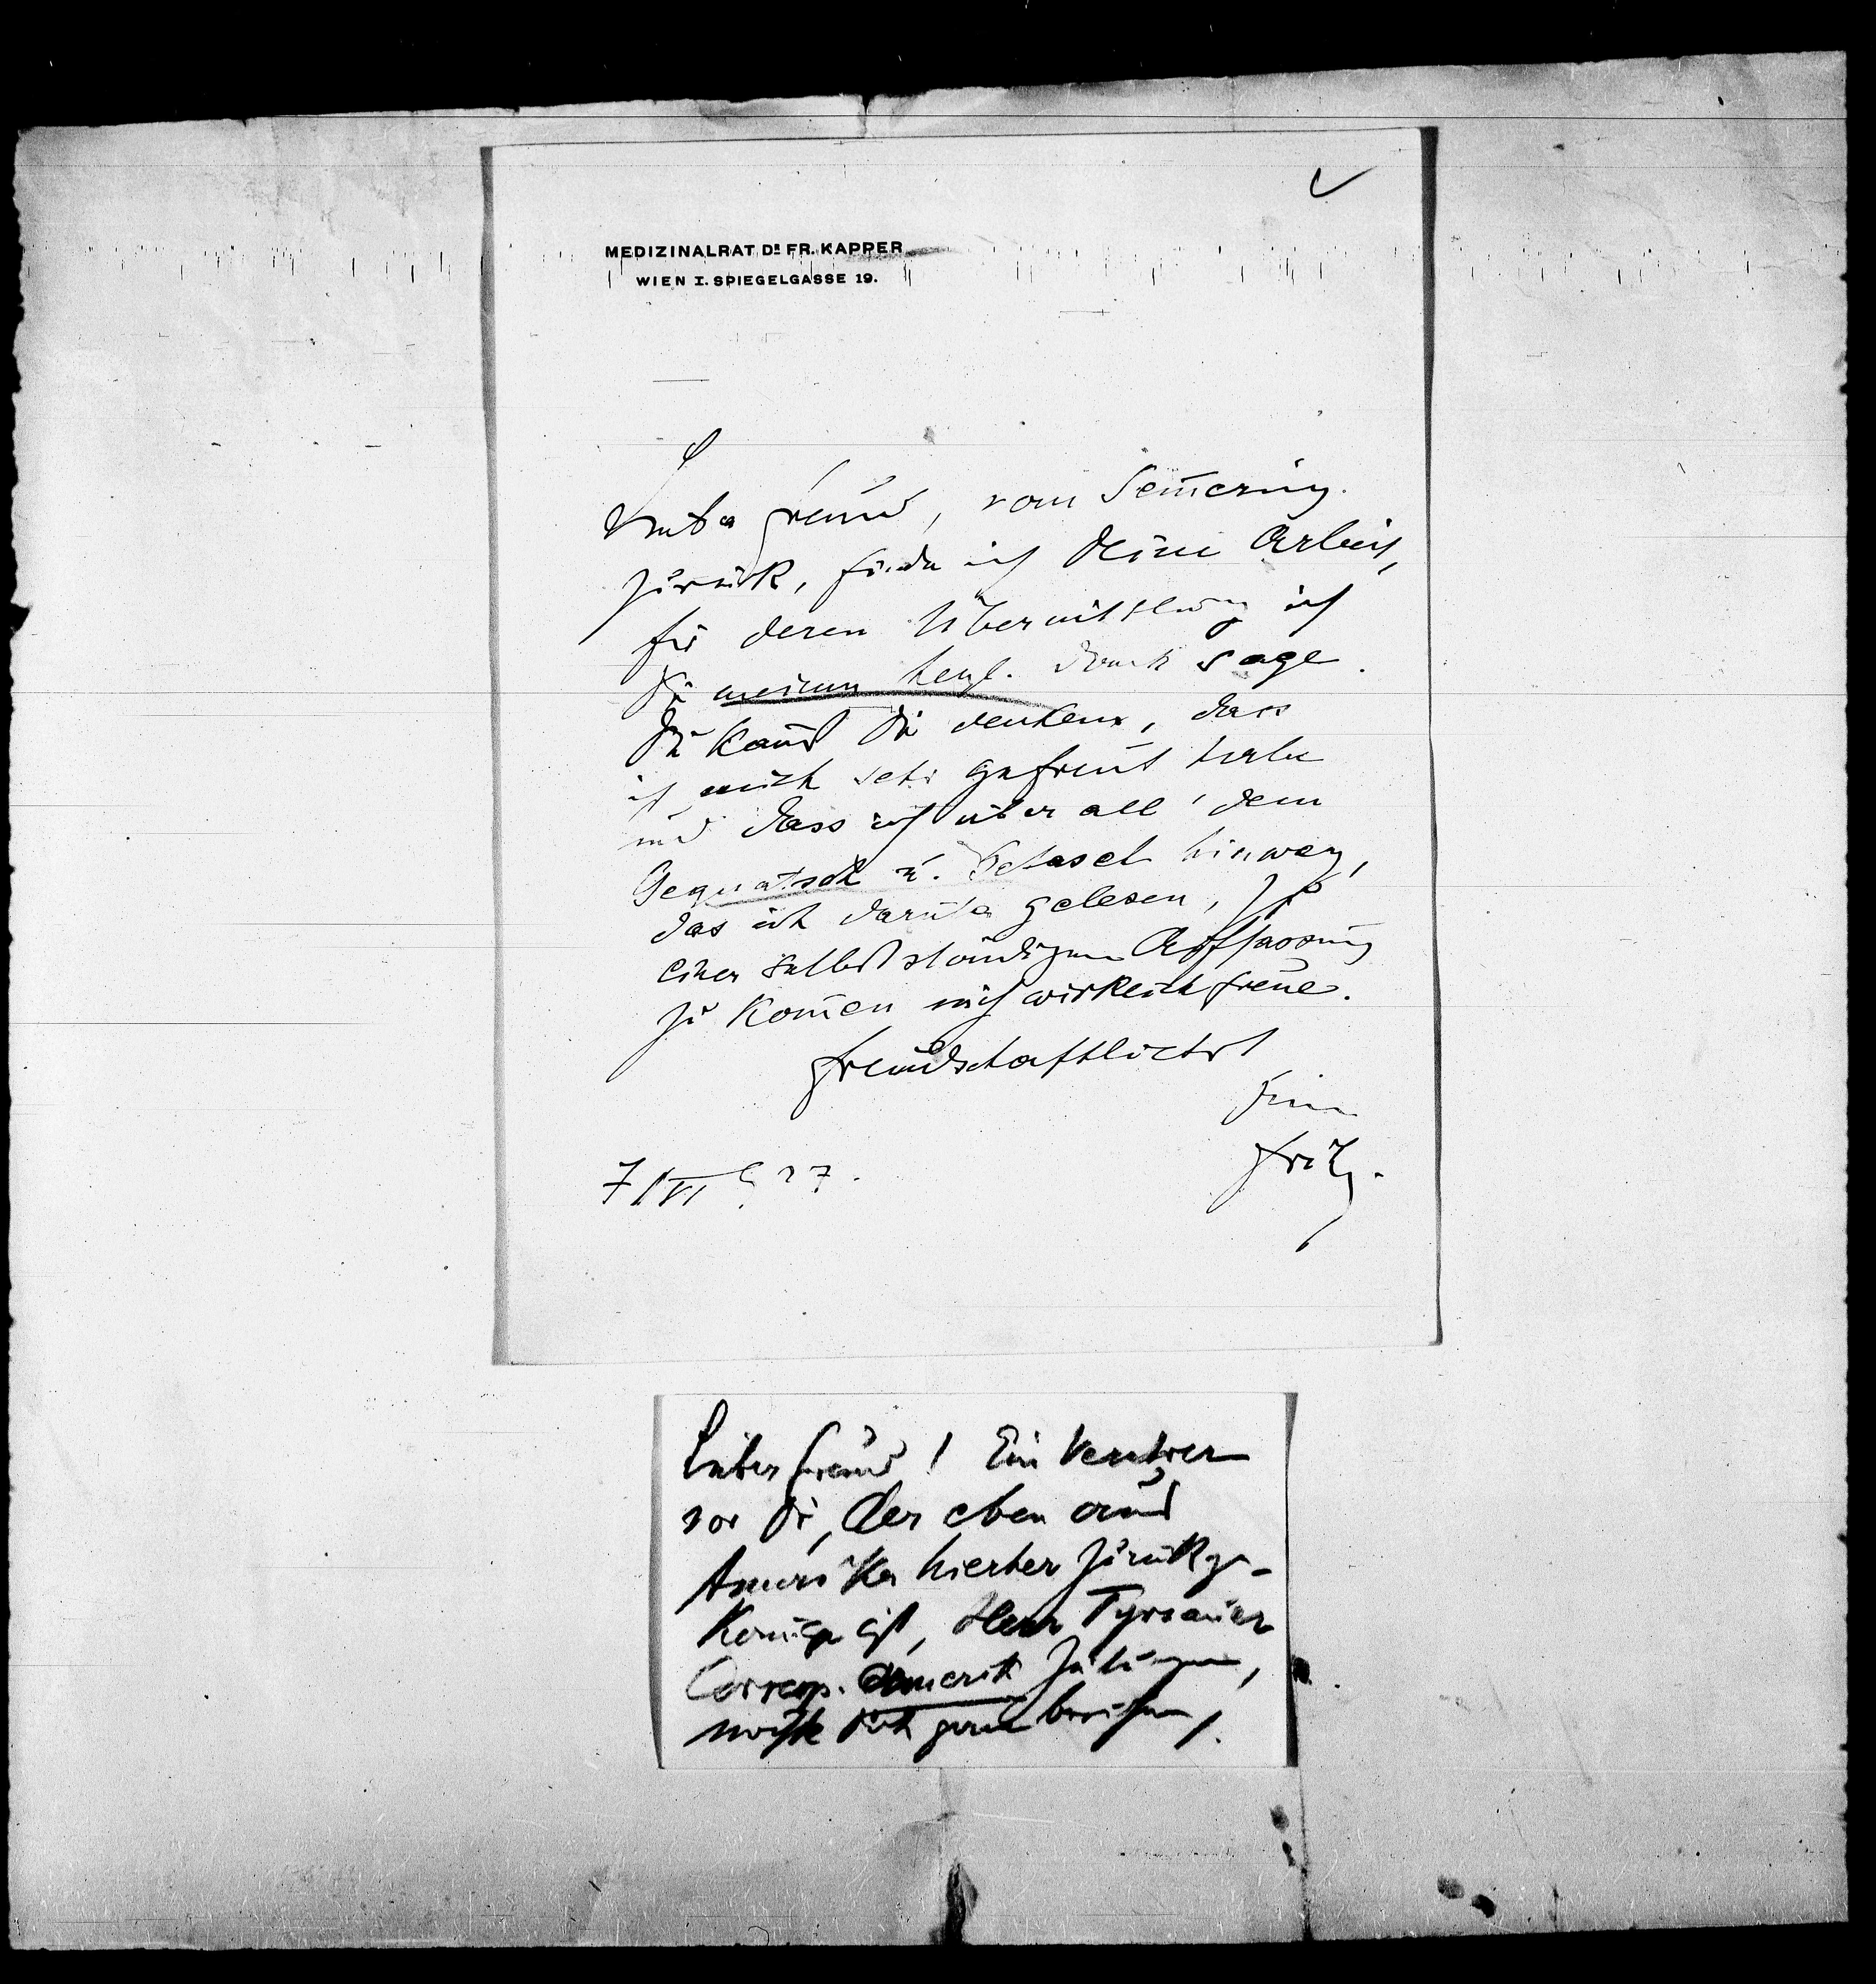 MEDIZINALRAT Dr FR. KAPPER
WIEN I. SPIEGELGASSE 19.
Lieber Freund, vom Sem̄ering
zurück, finde ich Deine Arbeit,
für deren Übermittlung ich
Dir meinen herzl. Dank sage.
Du kannst Dir denken, dass
ich mich sehr gefreut habe
und dass ich über all' dem
Gequatsch u. hinweg,
das ich darüber gelesen, zu
einer selbstständigen Auffassung
zu kom̄en mich wirklich freue.
freundschaftlichst
Dein
Fritz.
7/VI 27.
Lieber Freund! Ein Verehrer
von Dir, der eben aus
Amerika hierher zurückge-
kom̄en ist, Herr Tyrnauer
Corresp. amerik. Zeitungen,
möchte Dich gerne